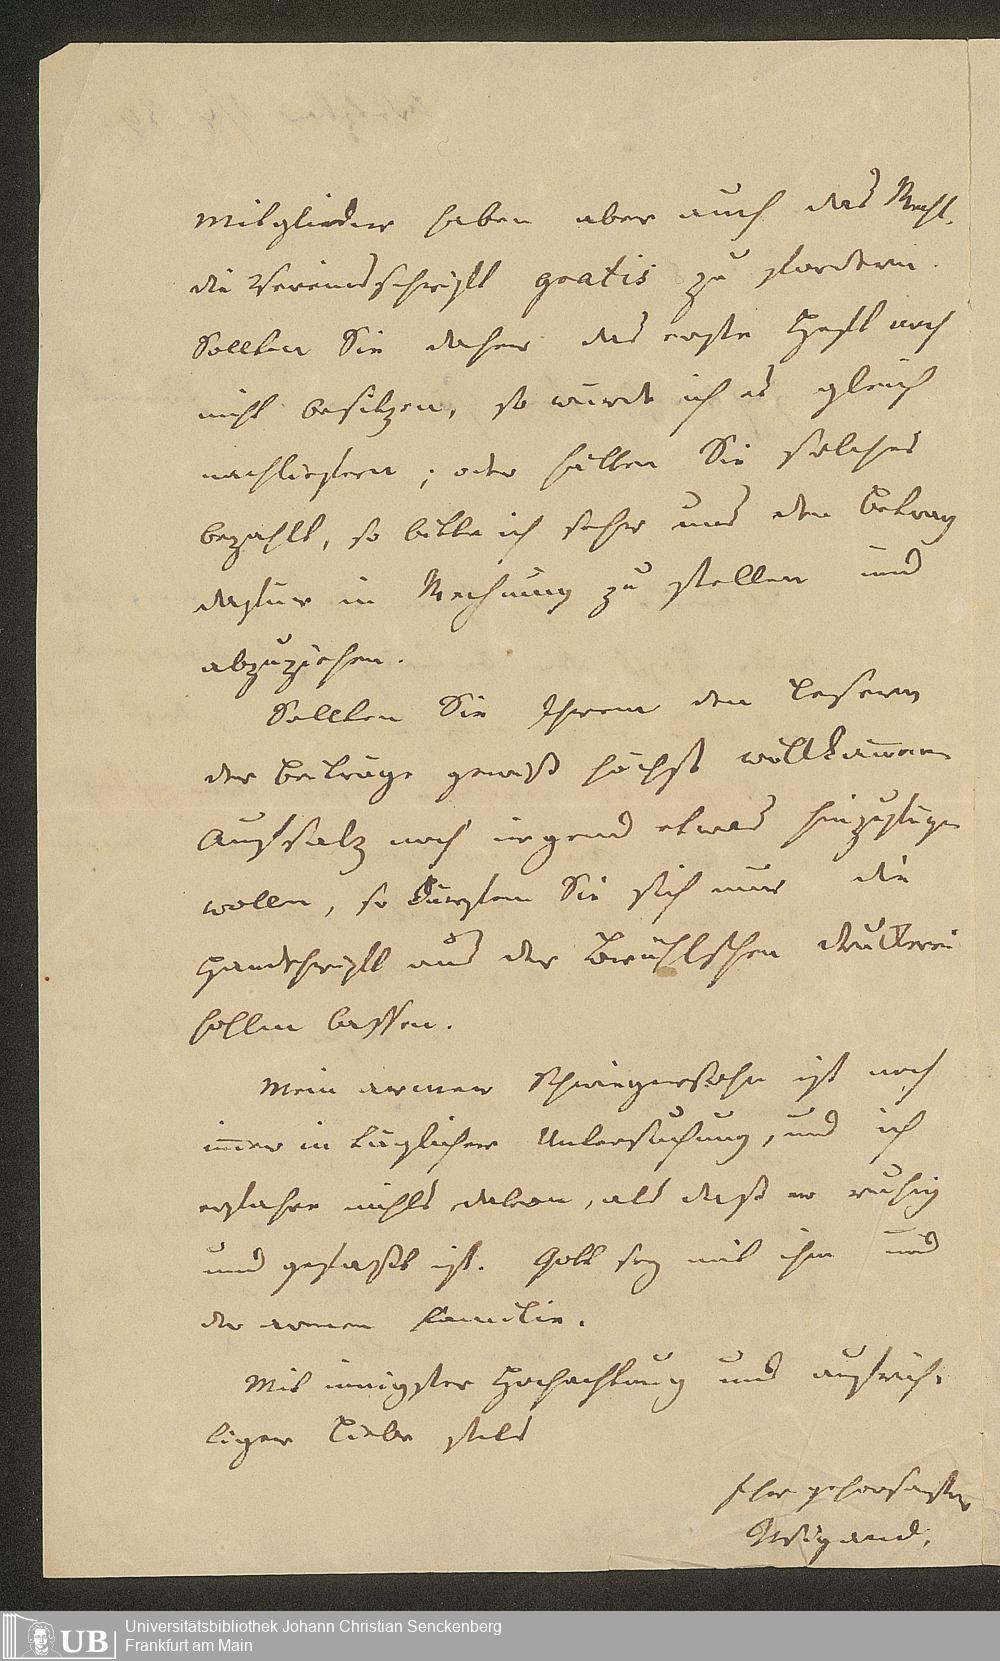 Mitglieder haben aber auch das Recht,
die Vereinsschrift gratis zu fordern.
Sollten Sie daher das erste Heft noch
nicht besitzen, so würde ich es gleich
nachliefern; oder hätten Sie solches
bezahlt, so bitte ich sehr uns den Betrag
dafür in Rechnung zu stellen und
abzuziehen.
Sollten Sie Ihrem den Lesern
der Beiträge gewiß höchst willkommenen
Aufsatz noch irgend etwas hinzufügen
wollen, so dürften Sie sich nur die
Handschrift aus der Brühlschen Druckerei
hohlen lassen.
Mein armer Schwiegersohn ist noch
immer in täglicher Untersuchung, und ich
erfahre nichts davon, als daß er ruhig
und gefaßt ist. Gott sey mit ihm und
der armen Familie.
Mit innigster Hochachtung und aufrich-
tiger Liebe stets
Ihr gehorsamster
Wigand.
UB
Universitätsbibliothek Johann Christian Senckenberg
Frankfurt am Main